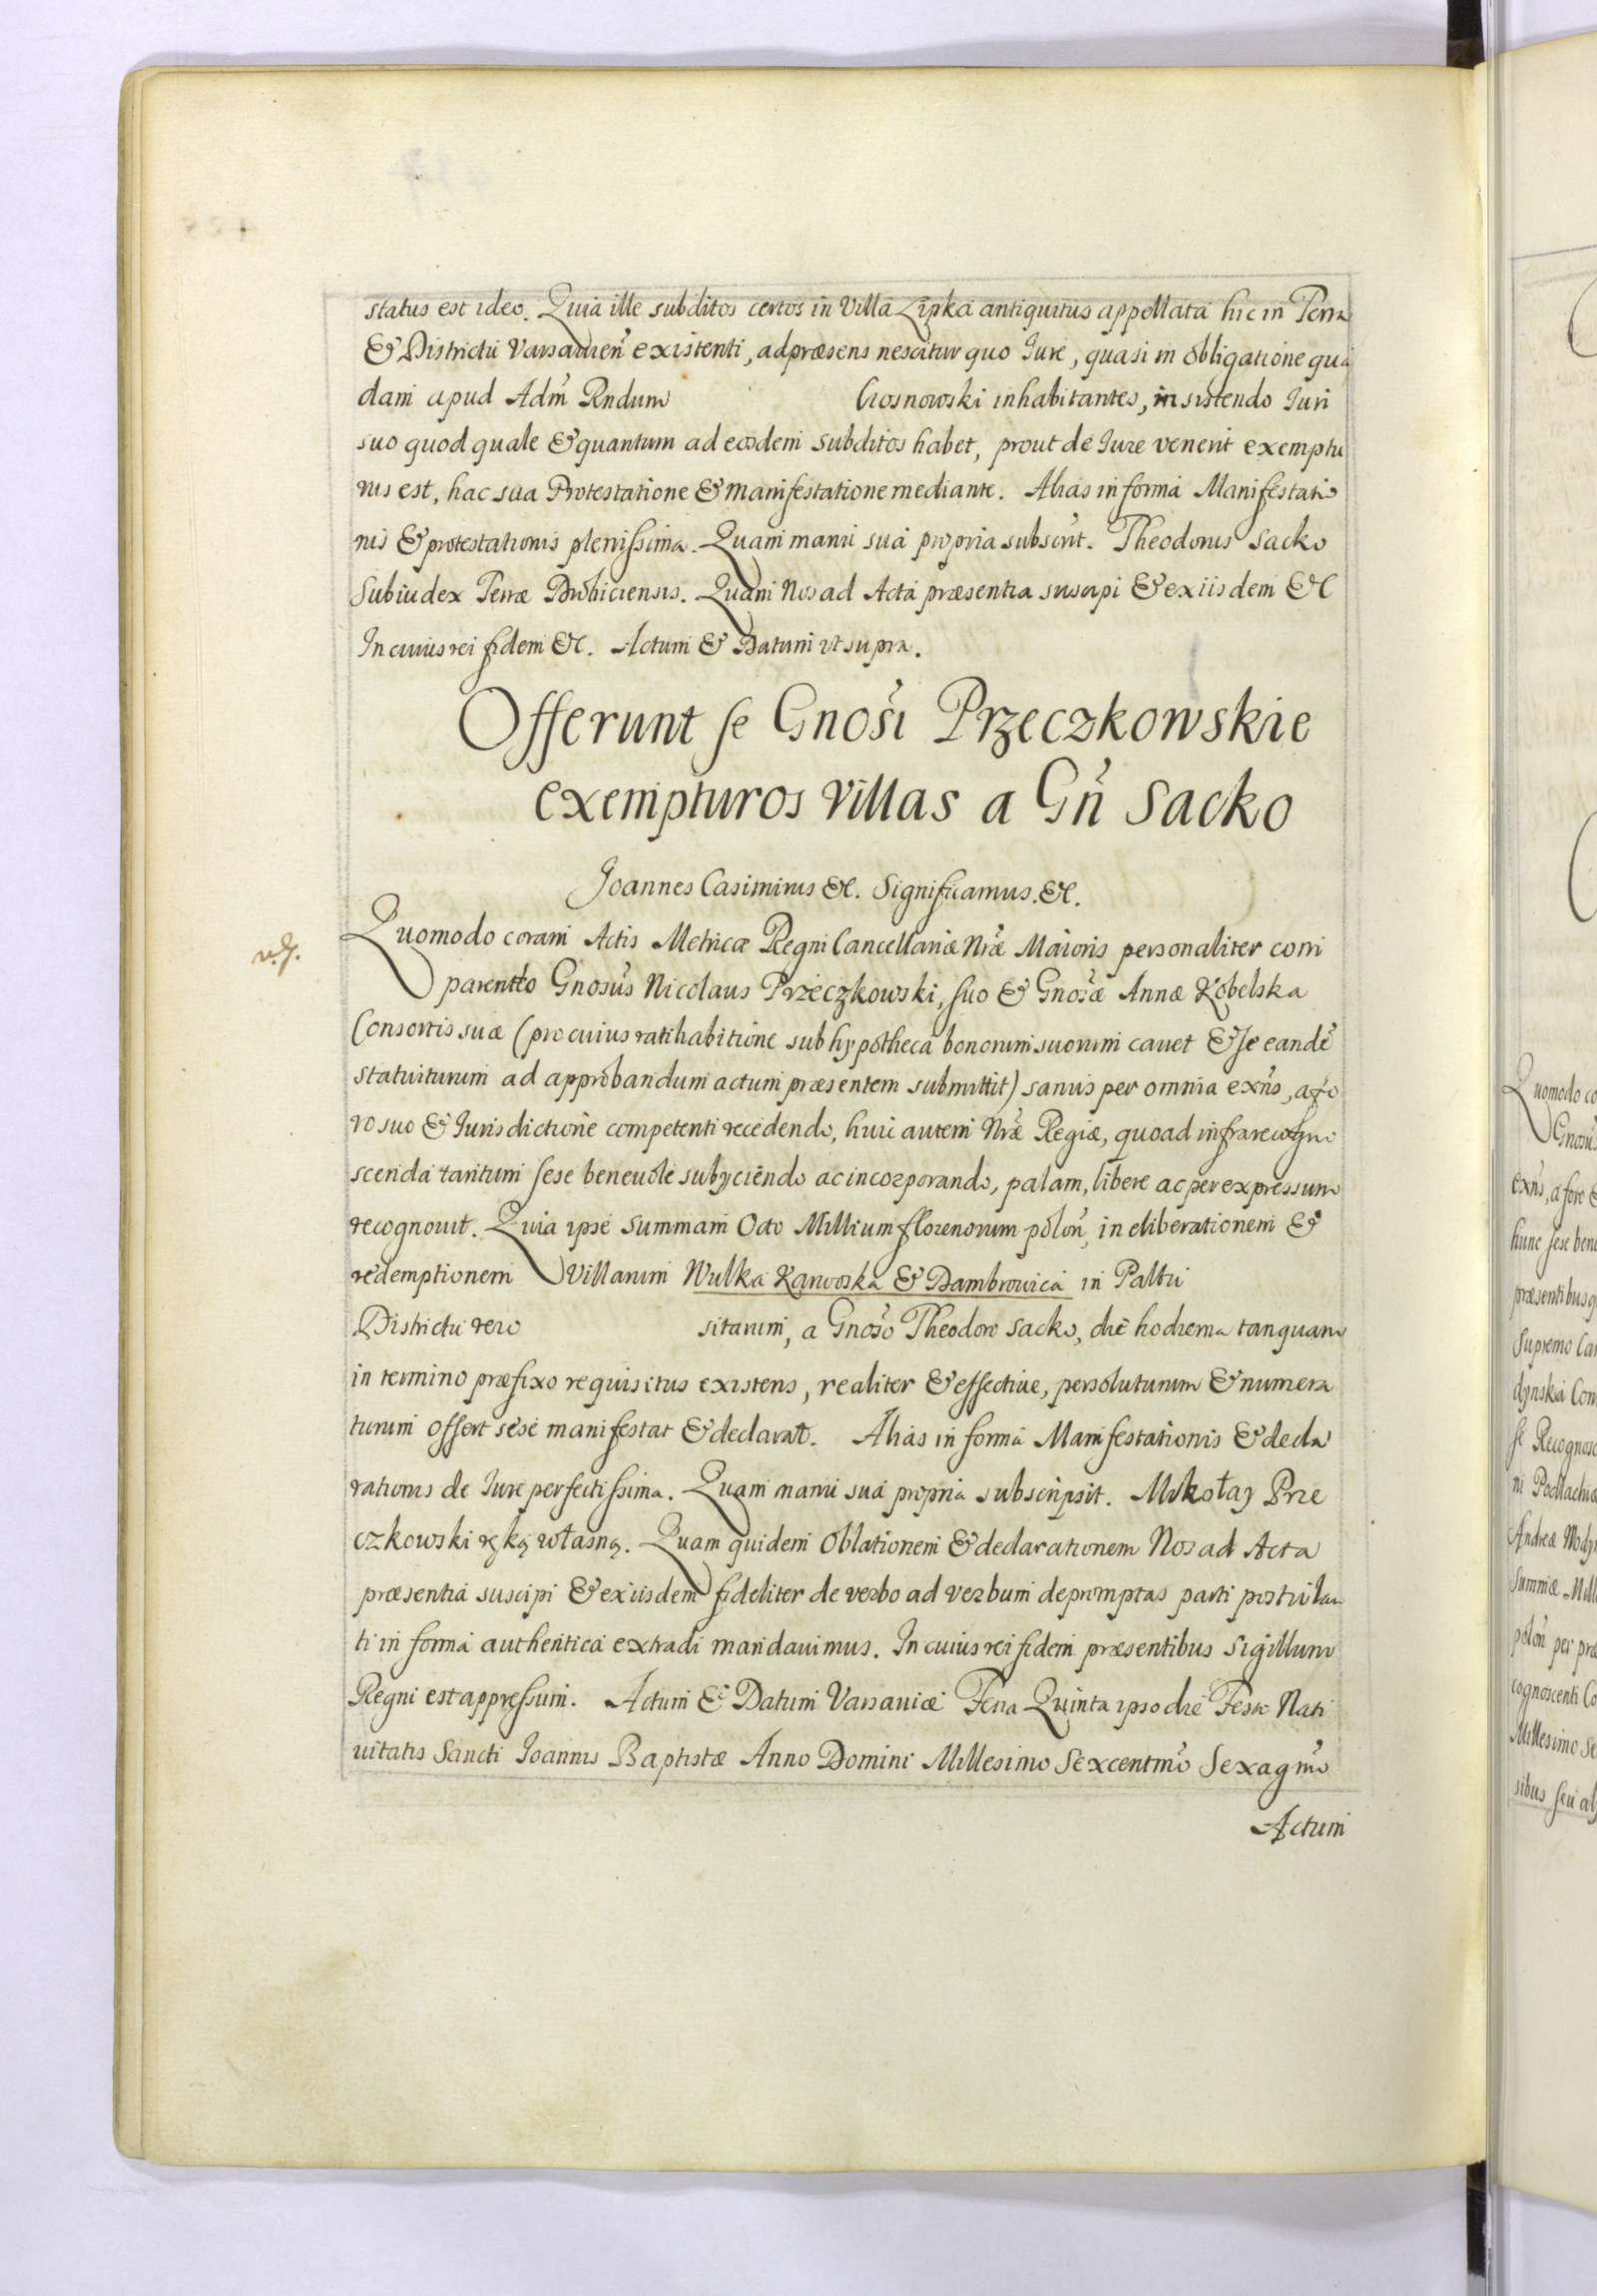 status est ideo. Quia ille subditos certos in Villa Lipka antiquitus appellata hic in Terra
& Districtu Varsavien̄ existenti, ad præsens nescitur quo Iure, quasi in obligatione qua
dam apud Adm̄ Rndum Crosnowski inhabitantes, insistendo Iuri
suo quod quale & quantum ad eosdem subditos habet, prout de Iure venerit exemptu
rus est, hac sua Protestatione & manifestatione mediante. Alias in forma Manifestatio
nis & protestationis plenissima. Quam manu sua propria subscrit. Theodorus Sacko
Subiudex Terræ Drohiciensis. Quam Nos ad Acta præsentia suscipi & ex iisdem &c
In cuius rei fidem &c. Actum & Datum ut supra.
Offerunt se Gnosi Przeczkowskie
exempturos Villas a Gn̄ Sacko
Joannes Casimirus &c. Significamus. &c.
Quomodo coram Actis Metricæ Regni Cancellariæ Nræ Maioris personaliter com
parendo Gnosus Nicolaus Przeczkowski, suo & Gnosæ Annæ Kobelska
Consortis suæ (pro cuius ratihabitione sub hypotheca bonorum suorum cavet & se eandē
statuiturum ad approbandum actum præsentem submittit) sanus per omnia exn̄s, a fo
ro suo & Jurisdictione competenti recedendo, huic autem Nræ Regiæ, quoad infra recogno
scenda tantum sese benevole subyciendo ac incorporando, palam, libere ac per expressum
recognovit. Quia ipse summam Octo Millium florenorum polon̄, in eliberationem &
redemptionem Villarum Wulka Karwoska & Dambrowica in Pałtu
Districtu vero sitarum, a Gnoso Theodoro Sacko, die hodierna tanquam
in termino præfixo requisitus existens, realiter & effective, persoluturum & numera
turum offert sese manifestat & declarat. Alias in forma Manifestationis & decla
rationis de Iure perfectissima. Quam manu sua propria subscripsit. Mikołay Prze
czkowski ręką własną. Quam quidem Oblationem & declarationem Nos ad Acta
præsentia suscipi & ex iisdem fideliter de verbo ad verbum depromptas parti postulan
ti in forma authentica extradi mandavimus. In cuius rei fidem præsentibus Sigillum
Regni est appressum. Actum & Datum Varsaviæ Feria Quinta ipso die Festo Nati
vitatis Sancti Joannis Baptistæ Anno Domini Millesimo Sexcentmo Sexagmo
Actum